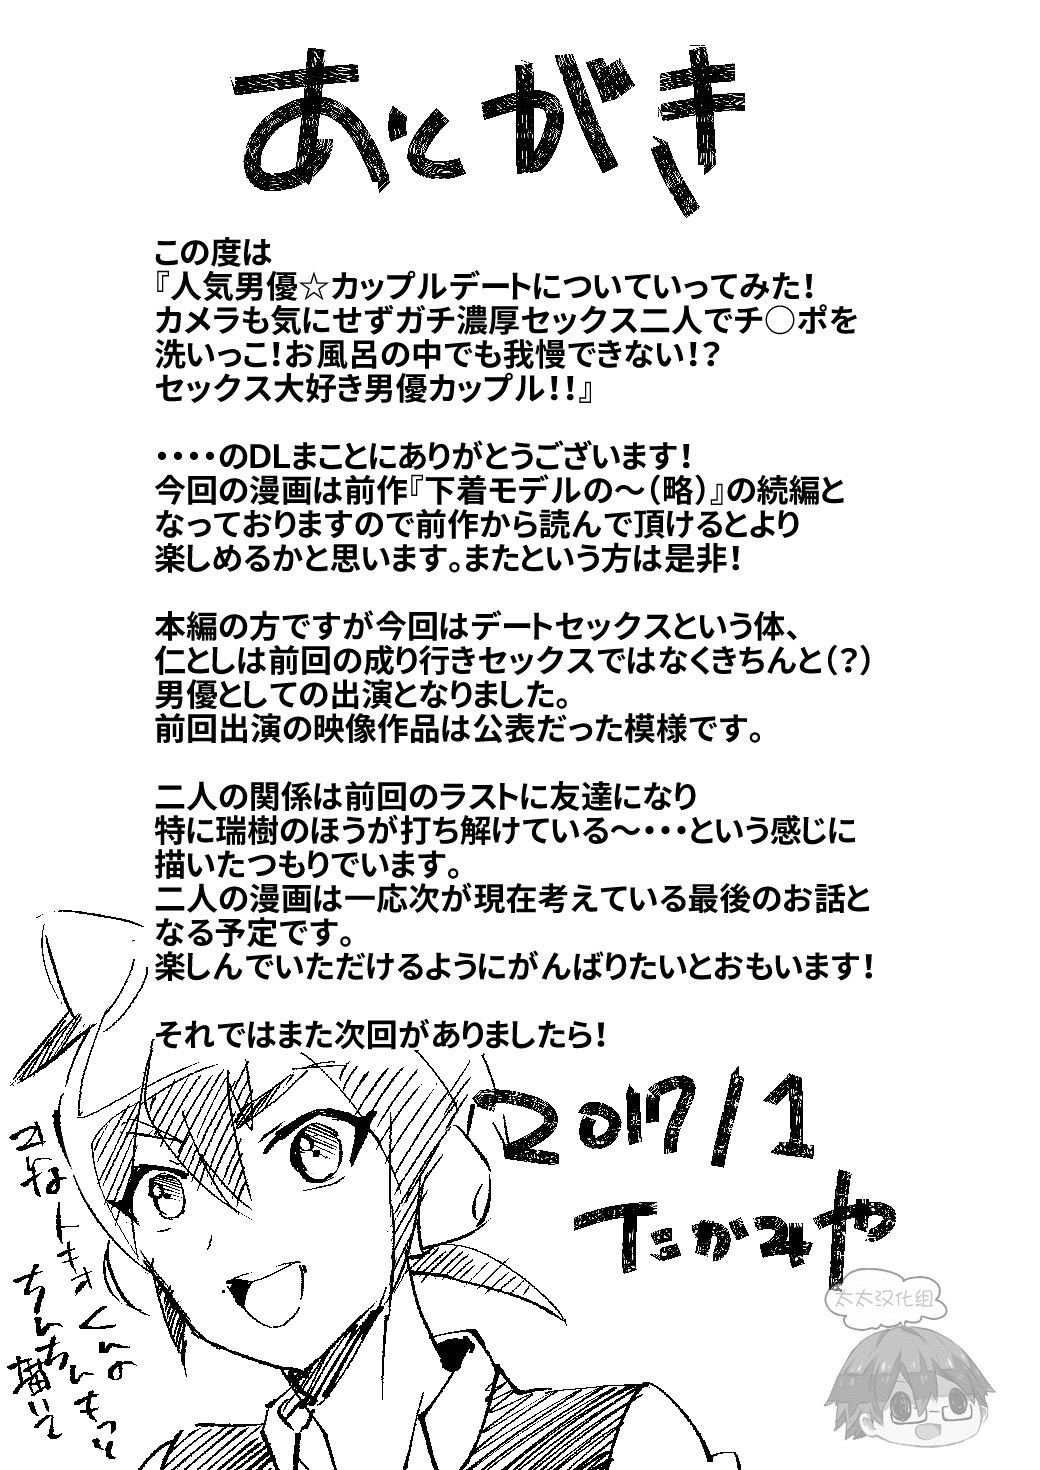 あとがき
この度は
『人気男優☆カップルデートについていってみた!
カメラも気にせずガチ濃厚セックス二人でチ○ポを
洗いっこ!お風呂の中でも我慢できない!?
セックス大好き男優カップル!!』
・・・・のDLまことにありがとうございます!
今回の漫画は前作『下着モデルの～(略)』の続編と
なっておりますので前作から読んで頂けるとより
楽しめるかと思います。またという方は是非!
本編の方ですが今回はデートセックスという体、
仁としは前回の成り行きセックスではなくきちんと(?)
男優としての出演となりました。
前回出演の映像作品は公表だった模様です。
二人の関係は前回のラストに友達になり
特に瑞樹のほうが打ち解けている～・・・という感じに
描いたつもりでいます。
二人の漫画は一応次が現在考えている最後のお話と
なる予定です。
楽しんでいただけるようにがんばりたいとおもいます!
それではまた次回がありましたら!
2017/1
たかみや
トキオくんの
ちんちんもっと
描いて
太太汉化组